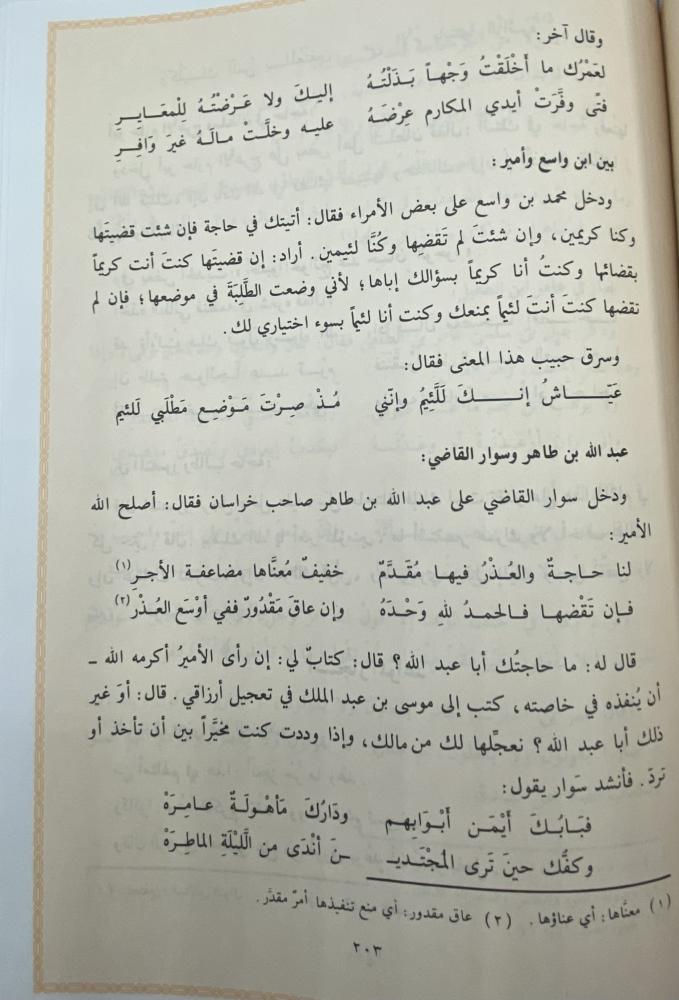 وقال آخر:
لعَمْرُك ما أَخْلَقْتُ وَجْهاً بَذَلْتُـهُ إليـكَ ولا عَـرَّضْتُـهُ لِلْمعَـايـرِ
فتًى وفَّرَتْ أيدي المكارم عِرْضَـهُ عليـه وخلَّـتْ مـالَـهُ غيرَ وَافِـرِ
بين ابن واسع وأمير:
ودخل محمد بن واسع على بعض الأمراء فقال: أتيتك في حاجة فإن شئت قضيتَها
وكنا كريمين، وإن شئتَ لم تَقضِها وكُنَّا لئيمين. أراد: إن قضيتَها كنتَ أنت كريماً
بقضائها وكنتُ أنا كريماً بسؤالك إياها؛ لأني وضعت الطَّلِبَةَ في موضعها؛ فإن لم
تقضها كنتَ أنتَ لئيماً بمنعك وكنت أنا لئيماً بسوء اختياري لك.
وسرق حبيب هذا المعنى فقال:
عَيَّـــاشُ إنـــكَ لَلَّئِيمُ وإنّني مُـذْ صِـرْتَ مَـوْضِـعَ مَطْلَبي لَلئيم
عبد الله بن طاهر وسوار القاضي:
ودخل سوار القاضي على عبد الله بن طاهر صاحب خراسان فقال: أصلح الله
الأمير:
لنا حـاجـةٌ والعُـذْرُ فيهـا مُقَـدَّمٌ خفيفٌ مُعنَّاها مضاعفـة الأجـرِ(١)
فـإن تَقْضهـا فـالحمـدُ للهِ وَحْـدَهُ وإن عاقَ مَقْدُورٌ ففي أوْسَع العُـذْر(٢)
قال له: ما حاجتُك أبا عبد الله؟ قال: كتابٌ لي: إن رأى الأميرُ أكرمه الله ـ
أن يُنفذه في خاصته، كتب إلى موسى بن عبد الملك في تعجيل أرزاقي. قال: أوَ غير
ذلك أبا عبد الله؟ نعجِّلها لك من مالك، وإذا وددت كنت مخيَّراً بين أن تأخذ أو
تَردّ. فأنشد سَوار يقول:
فبَـابُـكَ أيْمَـن أبْـوَابِهِـم ودَارُكَ مَأهْـولَـةٌ عـامِـرَهْ
وكفُّك حينَ تَرى الُمجْتَديـ ـنَ أنْدَى من اللَّيْلَةِ الماطِـرَهْ
(١) معنَّاها: أي عناؤها. (٢) عاق مقدور: أي منع تنفيذها أمرٌ مقدَّر.
٢٠٣